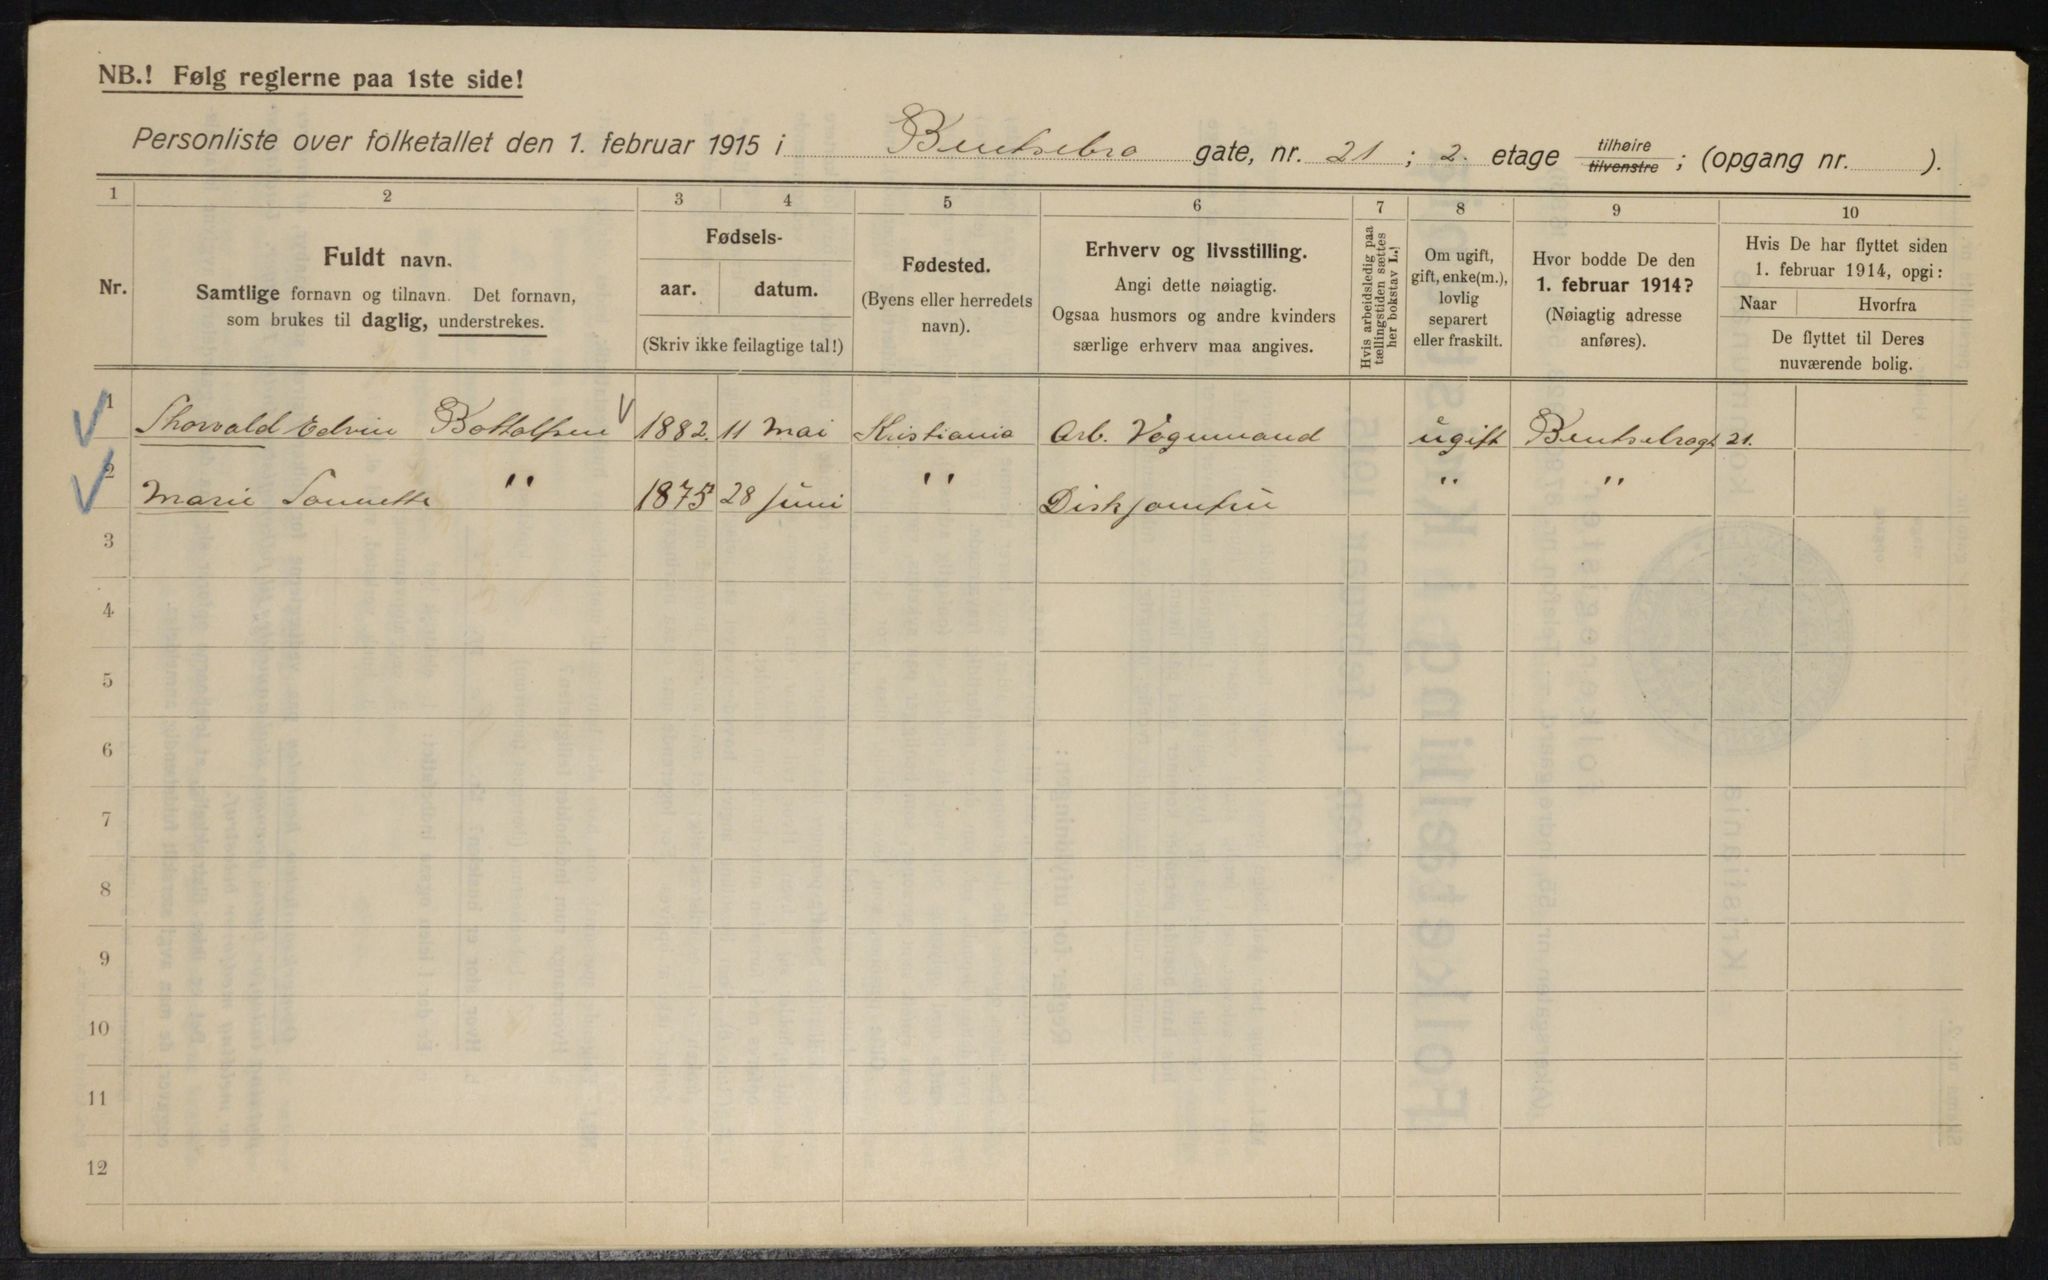 NB.! Følg reglerne paa 1ste side!
Personliste over folketallet den 1. februar 1915 i Bentsebro gate, nr. 21 ; 2. etage tilhøire tilvenstre ; (opgang nr. ).
1 2 3 4 5 6 7 8 9 10
Nr.
Fuldt navn.
Samtlige fornavn og tilnavn. Det fornavn,
som brukes til daglig, understrekes.
Fødsels-
aar. datum.
(Skriv ikke feilagtige tal!)
Fødested.
(Byens eller herredets
navn).
Erhverv og livsstilling.
Angi dette nøiagtig.
Ogsaa husmors og andre kvinders
særlige erhverv maa angives.
Hvis arbeidsledig paa
tællingstiden sættes
her bokstav L.
Om ugift,
gift, enke(m.),
lovlig
separert
eller fraskilt.
Hvor bodde De den
1. februar 1914?
(Nøiagtig adresse
anføres).
Hvis De har flyttet siden
1. februar 1914, opgi:
Naar Hvorfra
De flyttet til Deres
nuværende bolig.
1 Thorvald Edvin Botholfsen 1882. 11 Mai Kristiania Arb. Vognmand ugift Bentsebrogt 21.
2 Marie " 1875 28 Juni " " "
3
4
5
6
7
8
9
10
11
12